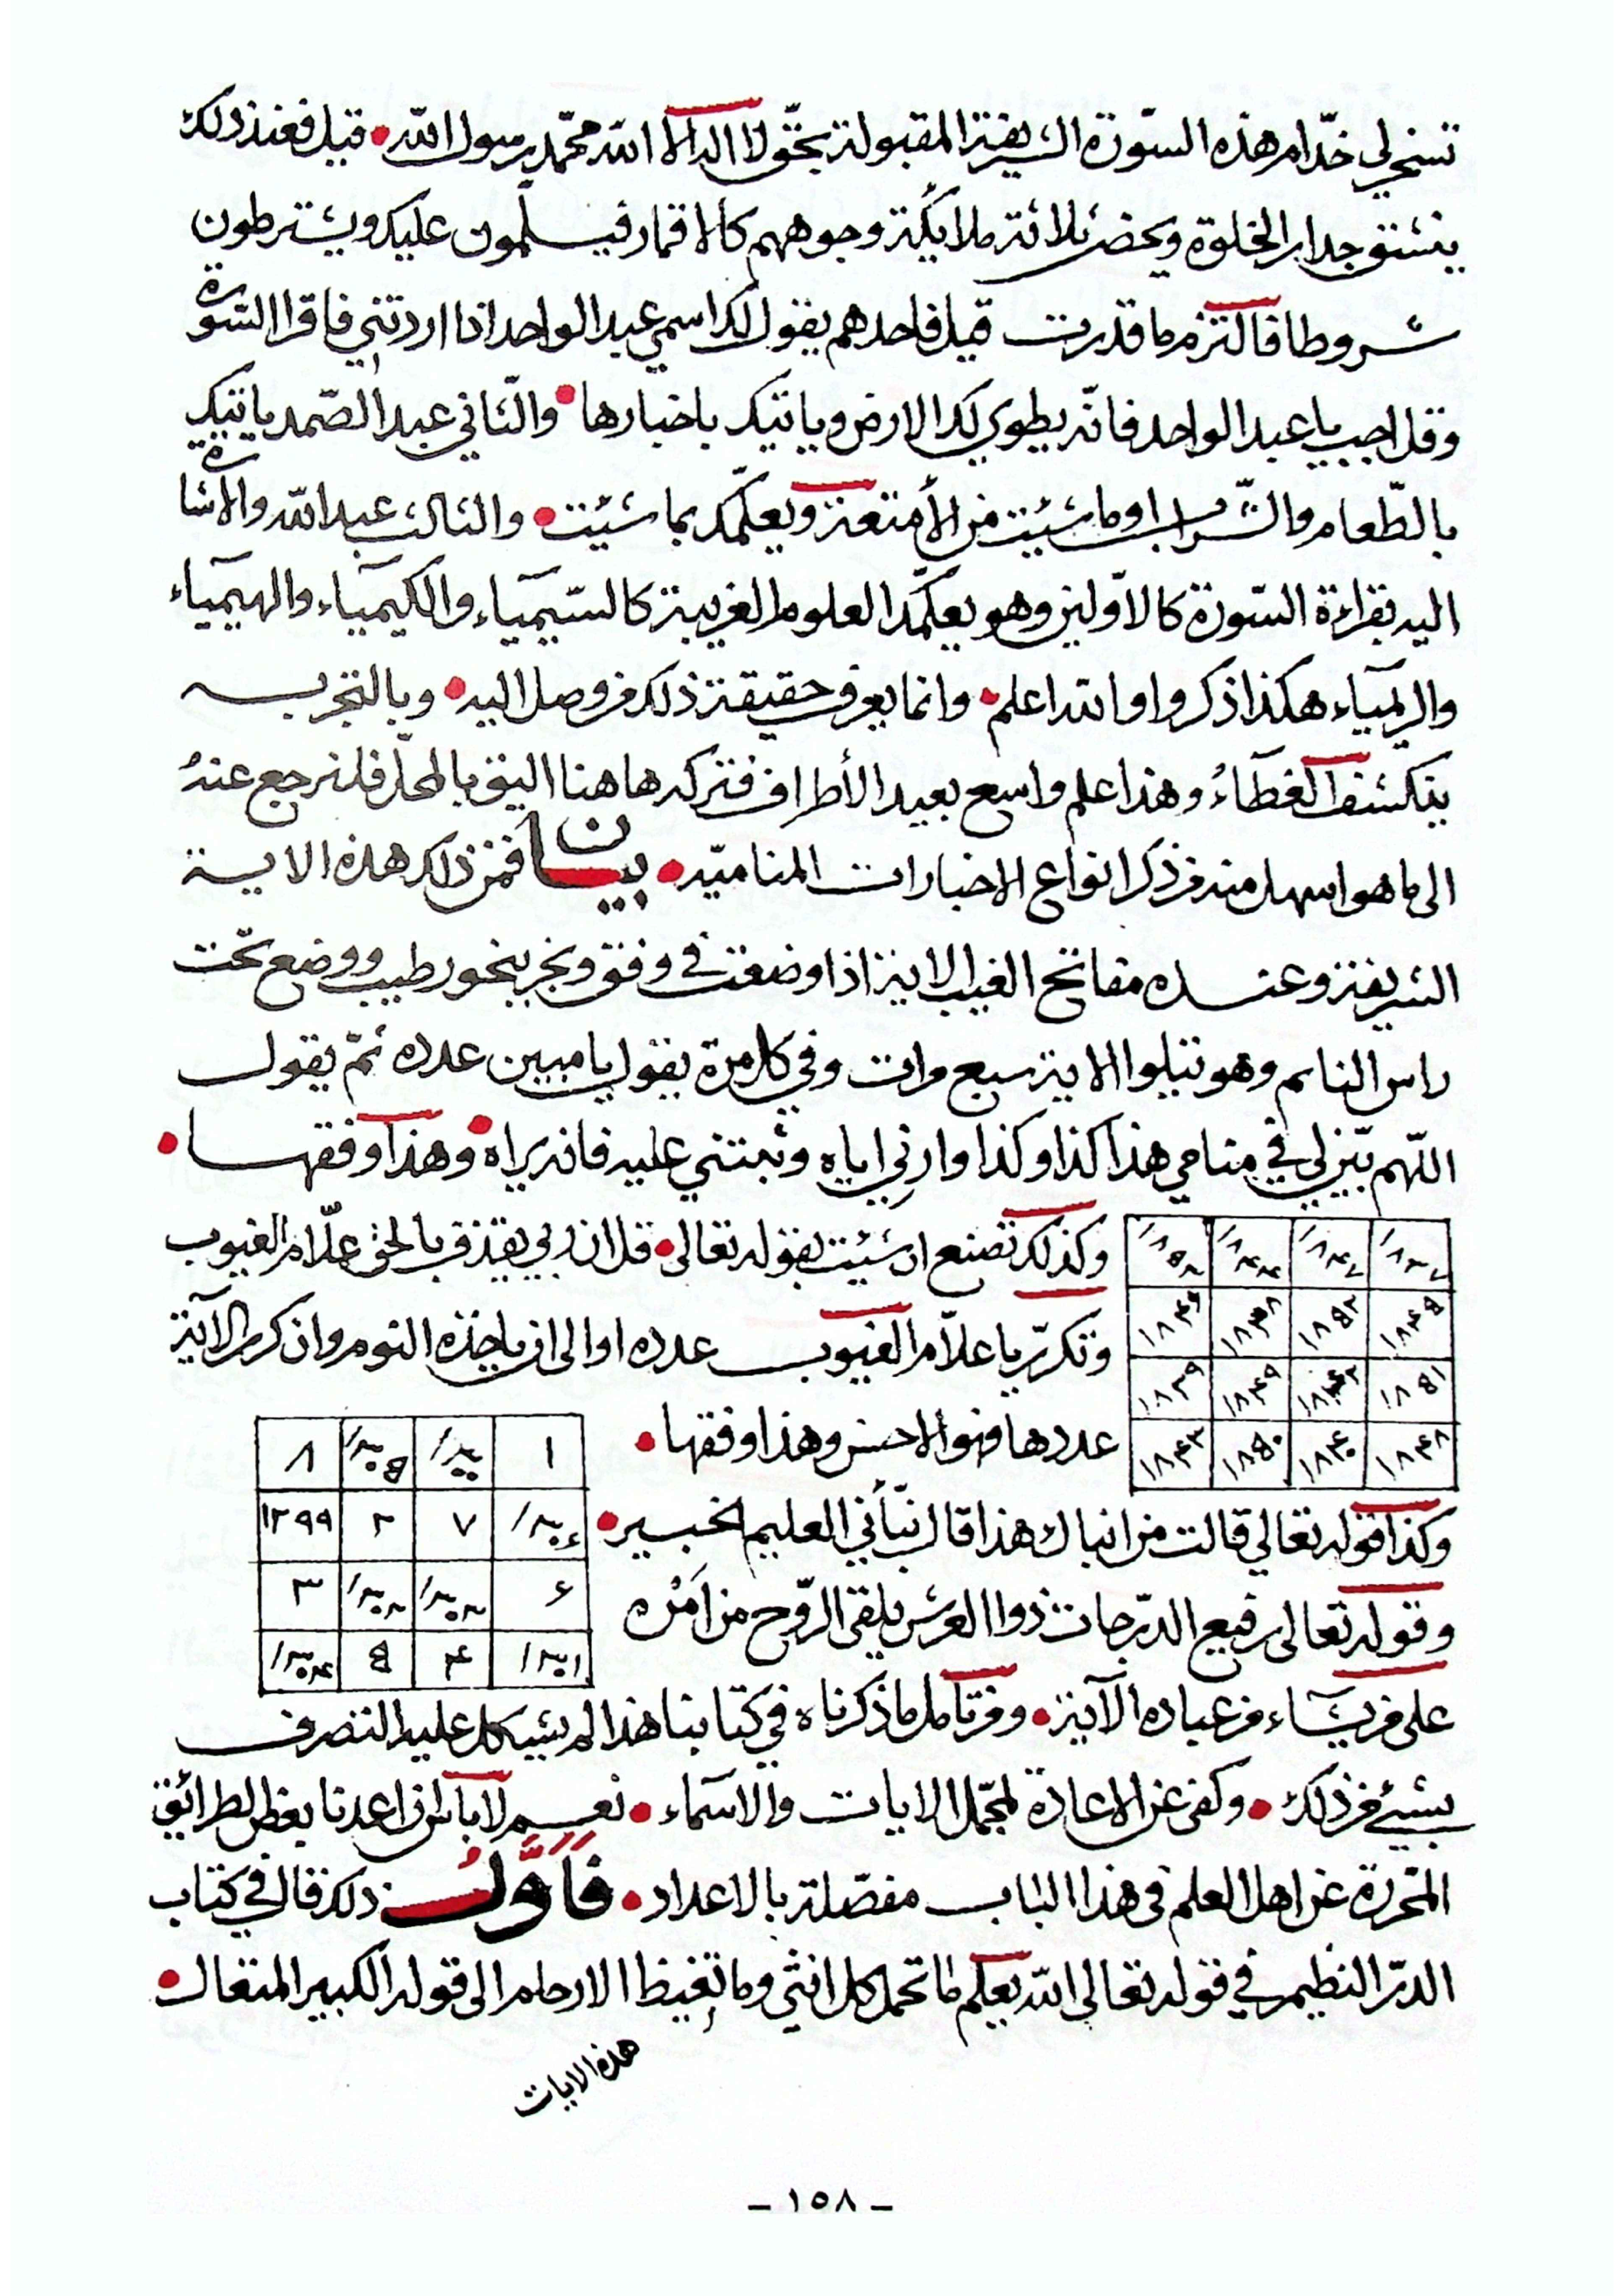 تسخر لي خدّام هذه السّورة الشريفة المقبولة بحقّ لا اله الا الله محمّد رسول الله • قيل فعند ذلك
ينشق جدار الخلوة ويحضر ثلاثة ملايكة وجوههم كالاقمار فيسلّمون عليك ويشترطون
شروطا فالتزم ما قدرت قيل فاحدهم يقول لك اسمي عبد الواحد اذا اردتني فاقرا السّورة
وقل اجب يا عبد الواحد فانّه يطوي لك الارض وياتيك باخبارها • والثّاني عبد الصّمد ياتيك
بالطّعام والشّراب او ما شئيت من الأمتعة ويعلّمك بما شئيت • والثالث عبد الله والاشارة
اليه بقراءة السّورة كالاوّلين وهو يعلّمك العلوم الغريبة كالسّيميآء والكيميآء والهيميآء
والريميآء هكذا ذكروا والله اعلم • وانما يعرف حقيقة ذلك من وصل اليه • وبالتجربه
ينكشف الغطآءُ وهذا علم واسع بعيد الأطراف فتركه هاهنا اليق بالمحلّ فلنرجع عنهُ
الى ما هو اسهل منه من ذكر انواع الاخبارات المناميّه • بيان فمن ذلك هذه الاية
الشريفة وعنده مفاتح الغيب الاية اذا وضعت في وفق وبخر ببخور طيب ووضع تحت
راس النايم وهو يتلوا الاية سبع مرات وفي كل مرة يقول يا مبين عدده ثمّ يقول
اللّهم بيّن لي في منامي هذا كذا وكذا وارني اياه وثبتني عليه فانه يراه • وهذا وفقها •
وكذلك تصنع ان شئيت بقوله تعالى • قل ان ربي يقذف بالحق علّام الغيوب
وتكرّر يا علّام الغيوب عدده او الى ان ياخذه النوم وان كرر الآية
عددها فهو الاحسن وهذا وفقها •
١٨٣٧ ١٨٤٧ ١٨٤٤ ١٨٥٨
١٨٤٥ ١٨٥٢ ١٨٣٨ ١٨٤٦
١٨٥١ ١٨٤٢ ١٨٤٩ ١٨٣٩
١٨٤٨ ١٨٤٠ ١٨٥٠ ١٨٤٣
وكذا قوله تعالي قالت من انباك هذا قال نبّأني العليم الخبير •
وقوله تعالى رفيع الدّرجات ذوا العرش يلقى الرّوح من اَمْره
١ ١٣٠٠ ١٣٠٥ ٨
٧ ٢ ١٢٩٩
٦ ٣
٤ ٥ ١٣٠٤
على من يشآء من عباده الآية • ومن تامل ما ذكرناه في كتابنا هذا لم يشيكل عليه التصرف
بشيئ من ذلك • وكفى عن الاعادة لمجمل الايات والاسمآء • نعم لا باس ان اعدنا بعض الطرائق
المتحررة عن اهل العلم في هذا الباب مفصّلة بالاعداد • فَاَوَّلُ ذلك قال في كتاب
الدرّ النظيم في قوله تعالى الله يعلم ما تحمل كل انثى وما تغيظ الارحام الى قوله الكبير المتعال •
هذه الايات
- ١٥٨ -